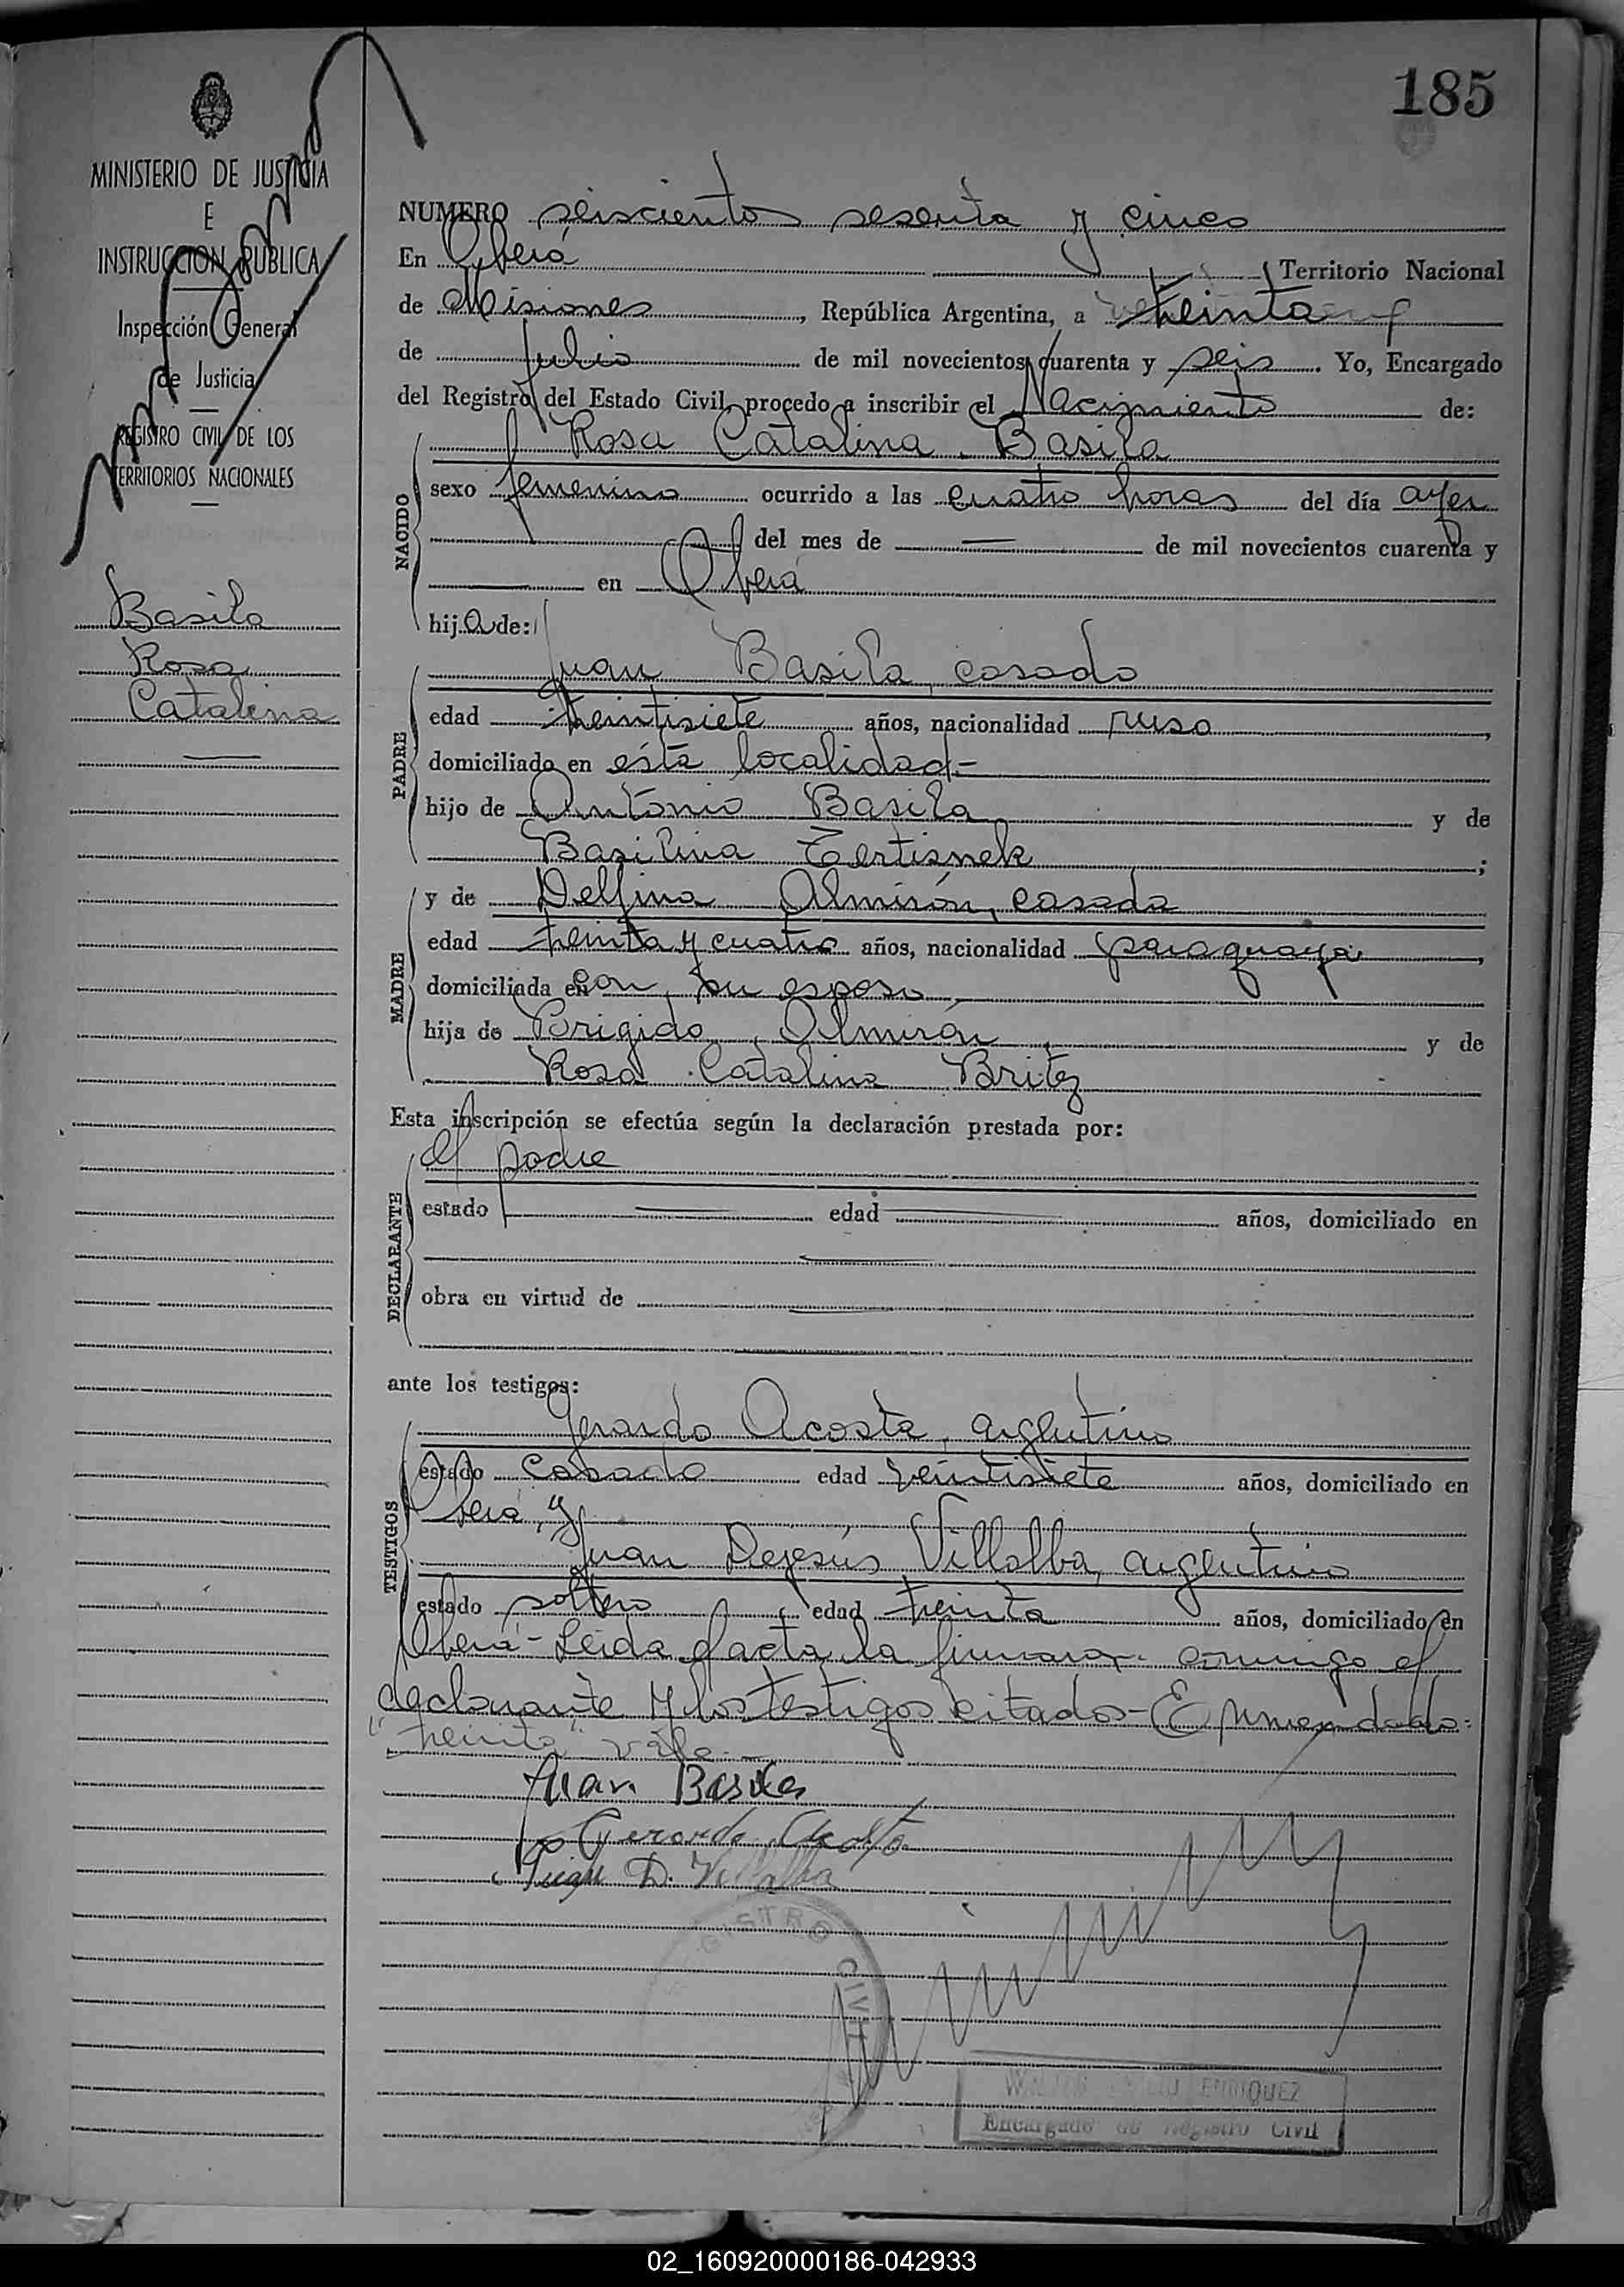 185
MINISTERIO DE JUSTICIA
E
INSTRUCCION PUBLICA
Inspección General
de Justicia
REGISTRO CIVIL DE LOS
TERRITORIOS NACIONALES
Basila
Rosa
Catalina
NUMERO seiscientos sesenta y cinco
En Oberá Territorio Nacional
de Misiones, República Argentina, a treinta
de julio de mil novecientos cuarenta y seis. Yo, Encargado
del Registro del Estado Civil, procedo a inscribir el Nacimiento de:
Rosa Catalina Basila
NACIDO
sexo femenino ocurrido a las cuatro horas del día ayer
del mes de — de mil novecientos cuarenta y
— en Oberá
hija de:
Juan Basila, casado
PADRE
edad treintisiete años, nacionalidad ruso,
domiciliado en esta localidad.-
hijo de Antonio Basila y de
Basilina Tertisnek;
MADRE
y de Delfina Almirón, casada
edad treinta y cuatro años, nacionalidad paraguaya,
domiciliada en con su esposo
hija de Brigido Almirón y de
Rosa Catalina Britez
Esta inscripción se efectúa según la declaración prestada por:
el padre
DECLARANTE
estado — edad — años, domiciliado en
—
obra en virtud de —
—
ante los testigos:
Gerardo Acosta, argentino
TESTIGOS
estado casado edad veintisiete años, domiciliado en
Oberá, y
Juan Dejesús Villalba, argentino
estado soltero edad treinta años, domiciliado en
Oberá - Leida el acta, la firmaron conmigo el
declarante y los testigos citados - Enmendado:
"treinta" vale.-
Juan Basila
Gerardo Acosta
Juan D. Villalba
REGISTRO CIVIL
ENRIQUEZ
Encargado de Registro Civil
02_160920000186-042933